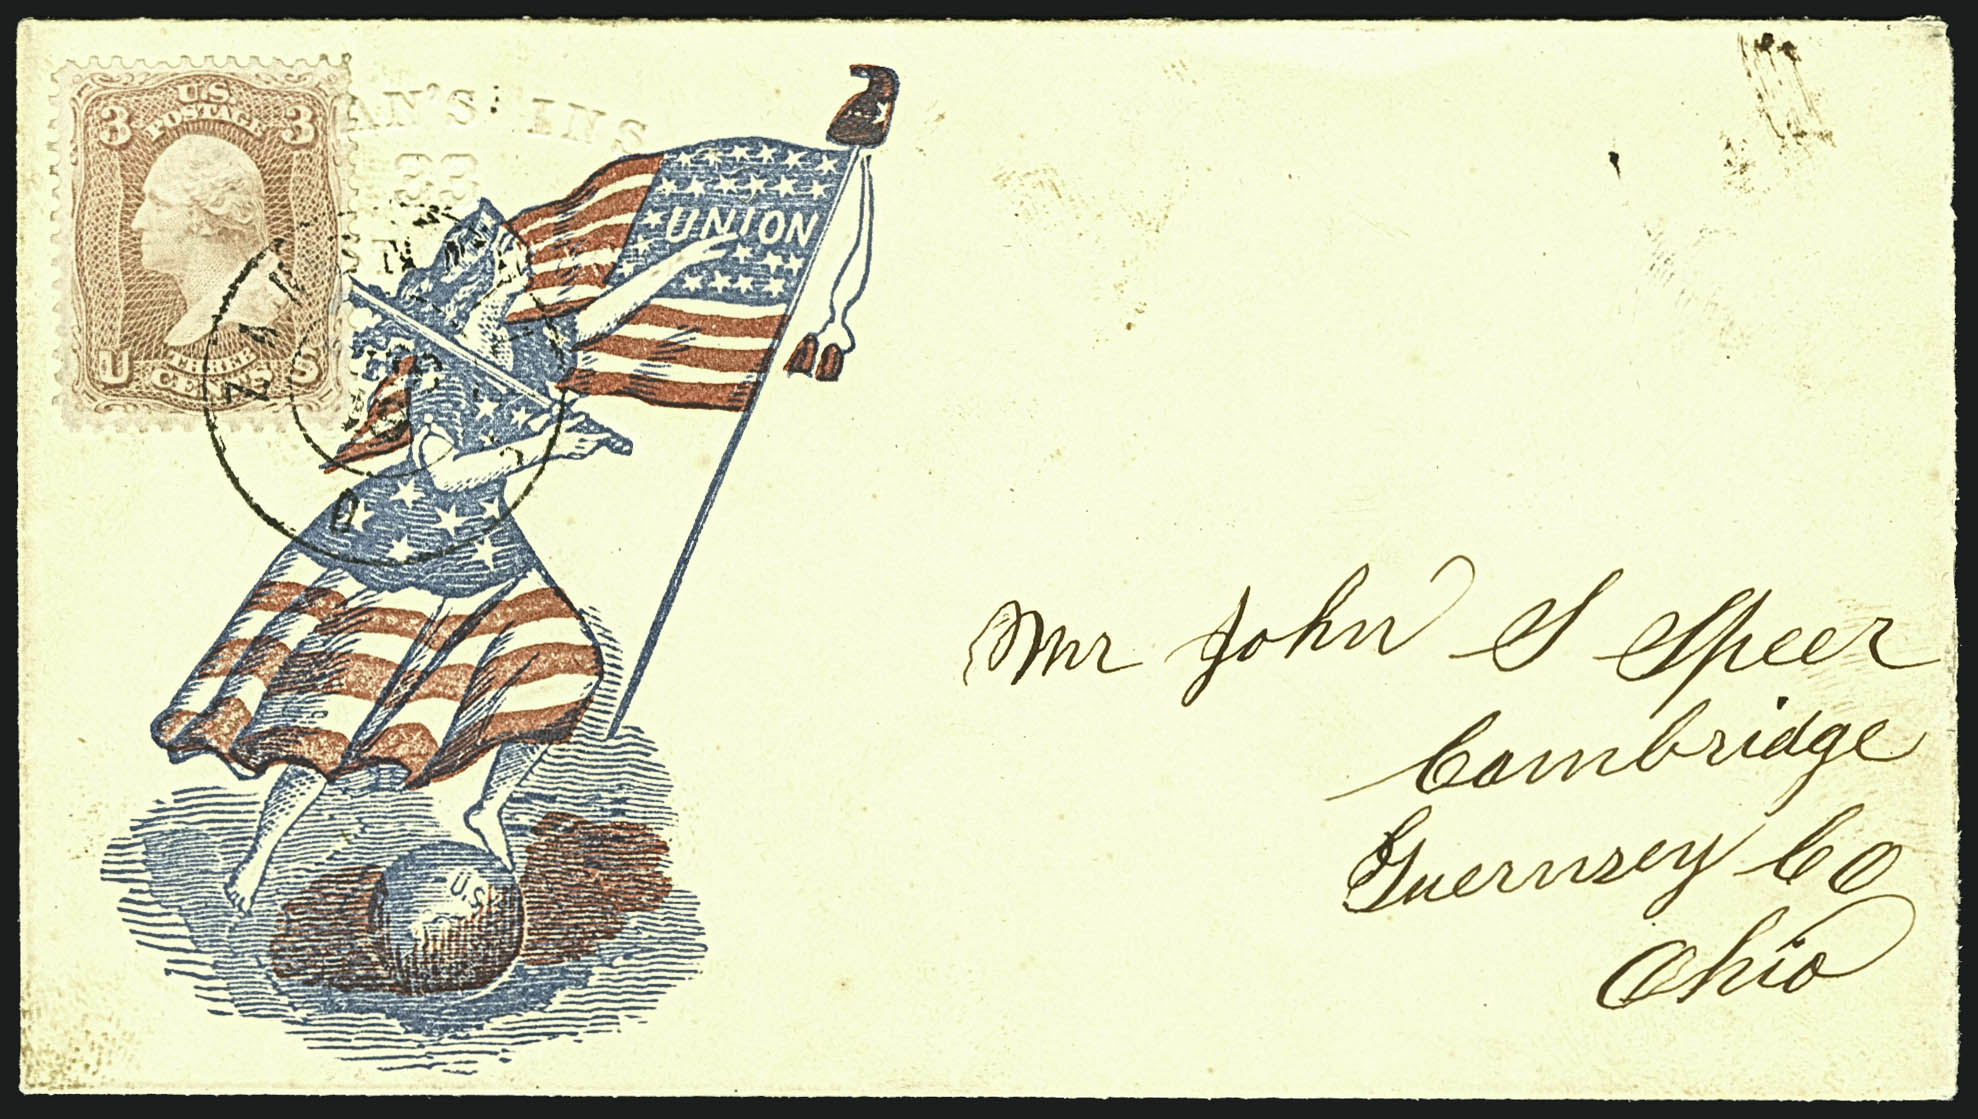 U.S.
POSTAGE
3 3
U S
THREE
CENTS
AN'S INS
33
UNION
U.S.
Mr John S Speer
Cambridge
Guernsey Co
Ohio